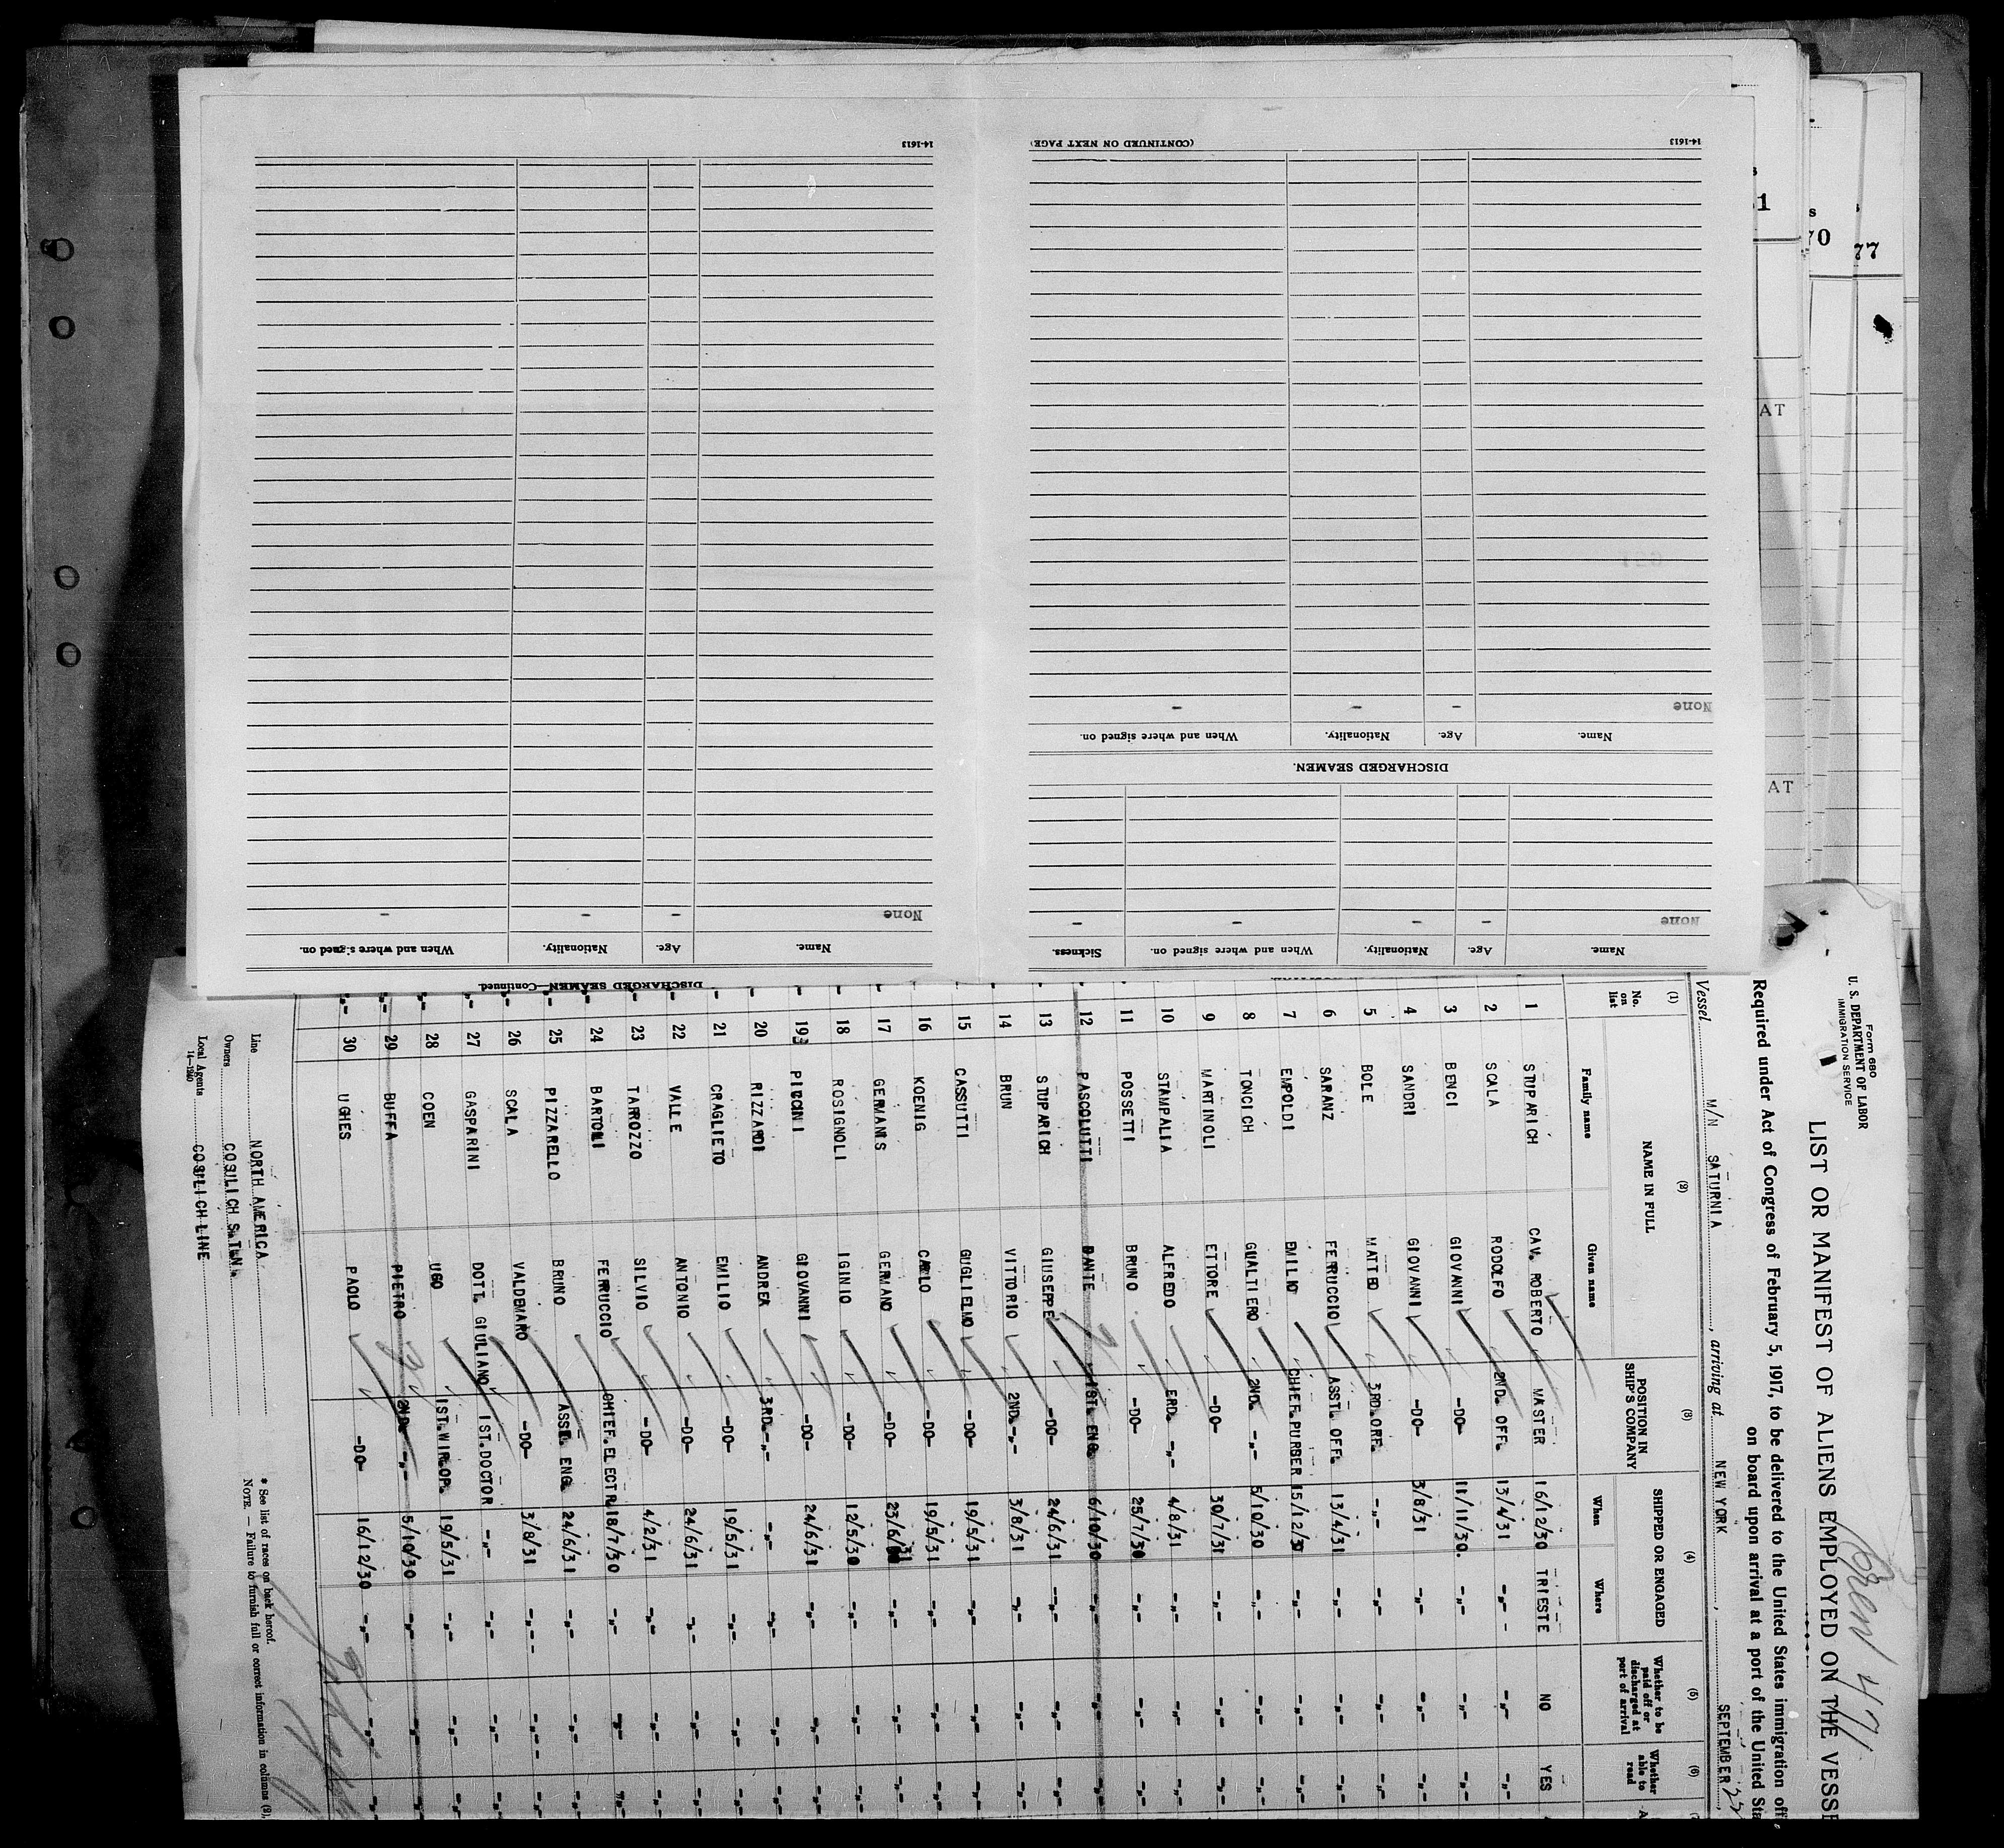 14-1613
(CONTINUED ON NEXT PAGE)
14-1613
DISCHARGED SEAMEN—Continued.
Name. Age. Nationality. When and where signed on.
None - - -
Name. Age. Nationality. When and where signed on. Sickness.
None - - - -
DISCHARGED SEAMEN.
Name. Age. Nationality. When and where signed on.
None - - -
1
70
77
AT
AT
Form 680
U. S. DEPARTMENT OF LABOR
IMMIGRATION SERVICE
LIST OR MANIFEST OF ALIENS EMPLOYED ON THE VESSE
Required under Act of Congress of February 5, 1917, to be delivered to the United States immigration off
on board upon arrival at a port of the United Sta
Vessel M/N SATURNIA, arriving at NEW YORK, SEPTEMBER 22
(1) (2) (3) (4) (5) (6) (7)
No. on list
NAME IN FULL
Family name
Given name
POSITION IN SHIP'S COMPANY
SHIPPED OR ENGAGED
When
Where
Whether to be paid off or discharged at port of arrival
Whether able to read
1 STUPARICH CAV. ROBERTO MASTER 16/12/30 TRIESTE NO YES
2 SCALA RODOLFO 2ND. OFF. 13/4/31 -"- -"- -"-
3 BENCI GIOVANNI -DO- 11/11/30. -"- -"- -"-
4 SANDRI GIOVANNI -DO- 3/8/31 -"- -"- -"-
5 BOLE MATTEO 3RD.OFF. -"- -"- -"- -"-
6 SARANZ FERRUCCIO ASST. OFF. 13/4/31 -"- -"- -"-
7 EMPOLDI EMILIO CHIEF.PURSER 15/12/3 -"- -"- -"-
8 TONCICH GUALTIERO 2ND. -"- 5/10/30 -"- -"- -"-
9 MARTINOLI ETTORE -DO- 30/7/31 -"- -"- -"-
10 STAMPALIA ALFREDO ERD. -"- 4/8/31 -"- -"- -"-
11 POSSETTI BRUNO -DO- 25/7/30 -"- -"- -"-
12 PASCOLUTTI DANTE 1ST. ENG. 6/10/30 -"- -"- -"-
13 STUPARICH GIUSEPPE -DO- 24/6/31 -"- -"- -"-
14 BRUN VITTORIO 2ND. -"- 3/8/31 -"- -"- -"-
15 CASSUTTI GUGLIELMO -DO- 19/5/31 -"- -"- -"-
16 KOENIG CARLO -DO- 19/5/31 -"- -"- -"-
17 GERMANIS GERMANO -DO- 23/6/31 -"- -"- -"-
18 ROSIGNOLI IGINIO -DO- 12/5/30 -"- -"- -"-
19 PICCINI GIOVANNI -DO- 24/6/31 -"- -"- -"-
20 RIZZARDI ANDREA 3RD. -"- -"- -"- -"- -"-
21 CRAGLIETO EMILIO -DO- 19/5/31 -"- -"- -"-
22 VALLE ANTONIO -DO- 24/6/31 -"- -"- -"-
23 TARROZZO SILVIO -DO- 4/2/31 -"- -"- -"-
24 BARTOLI FERRUCCIO CHIEF.ELECTR. 18/7/30 -"- -"- -"-
25 PIZZARELLO BRUNO ASST. ENG. 24/6/31 -"- -"- -"-
26 SCALA VALDEMARO -DO- 3/8/31 -"- -"- -"-
27 GASPARINI DOTT. GIULIANO 1ST.DOCTOR -"- -"- -"- -"-
28 COEN UGO 1ST.WIR.OP. 19/5/31 -"- -"- -"-
29 BUFFA PIETRO 2ND. -"- 5/10/30 -"- -"- -"-
30 UGHES PAOLO -DO- 16/12/30 -"- -"- -"-
Line NORTH AMERICA
Owners COSULICH S.T.N.
Local Agents COSULICH LINE
* See list of races on back hereof.
NOTE.—Failure to furnish full or correct information in columns (3),